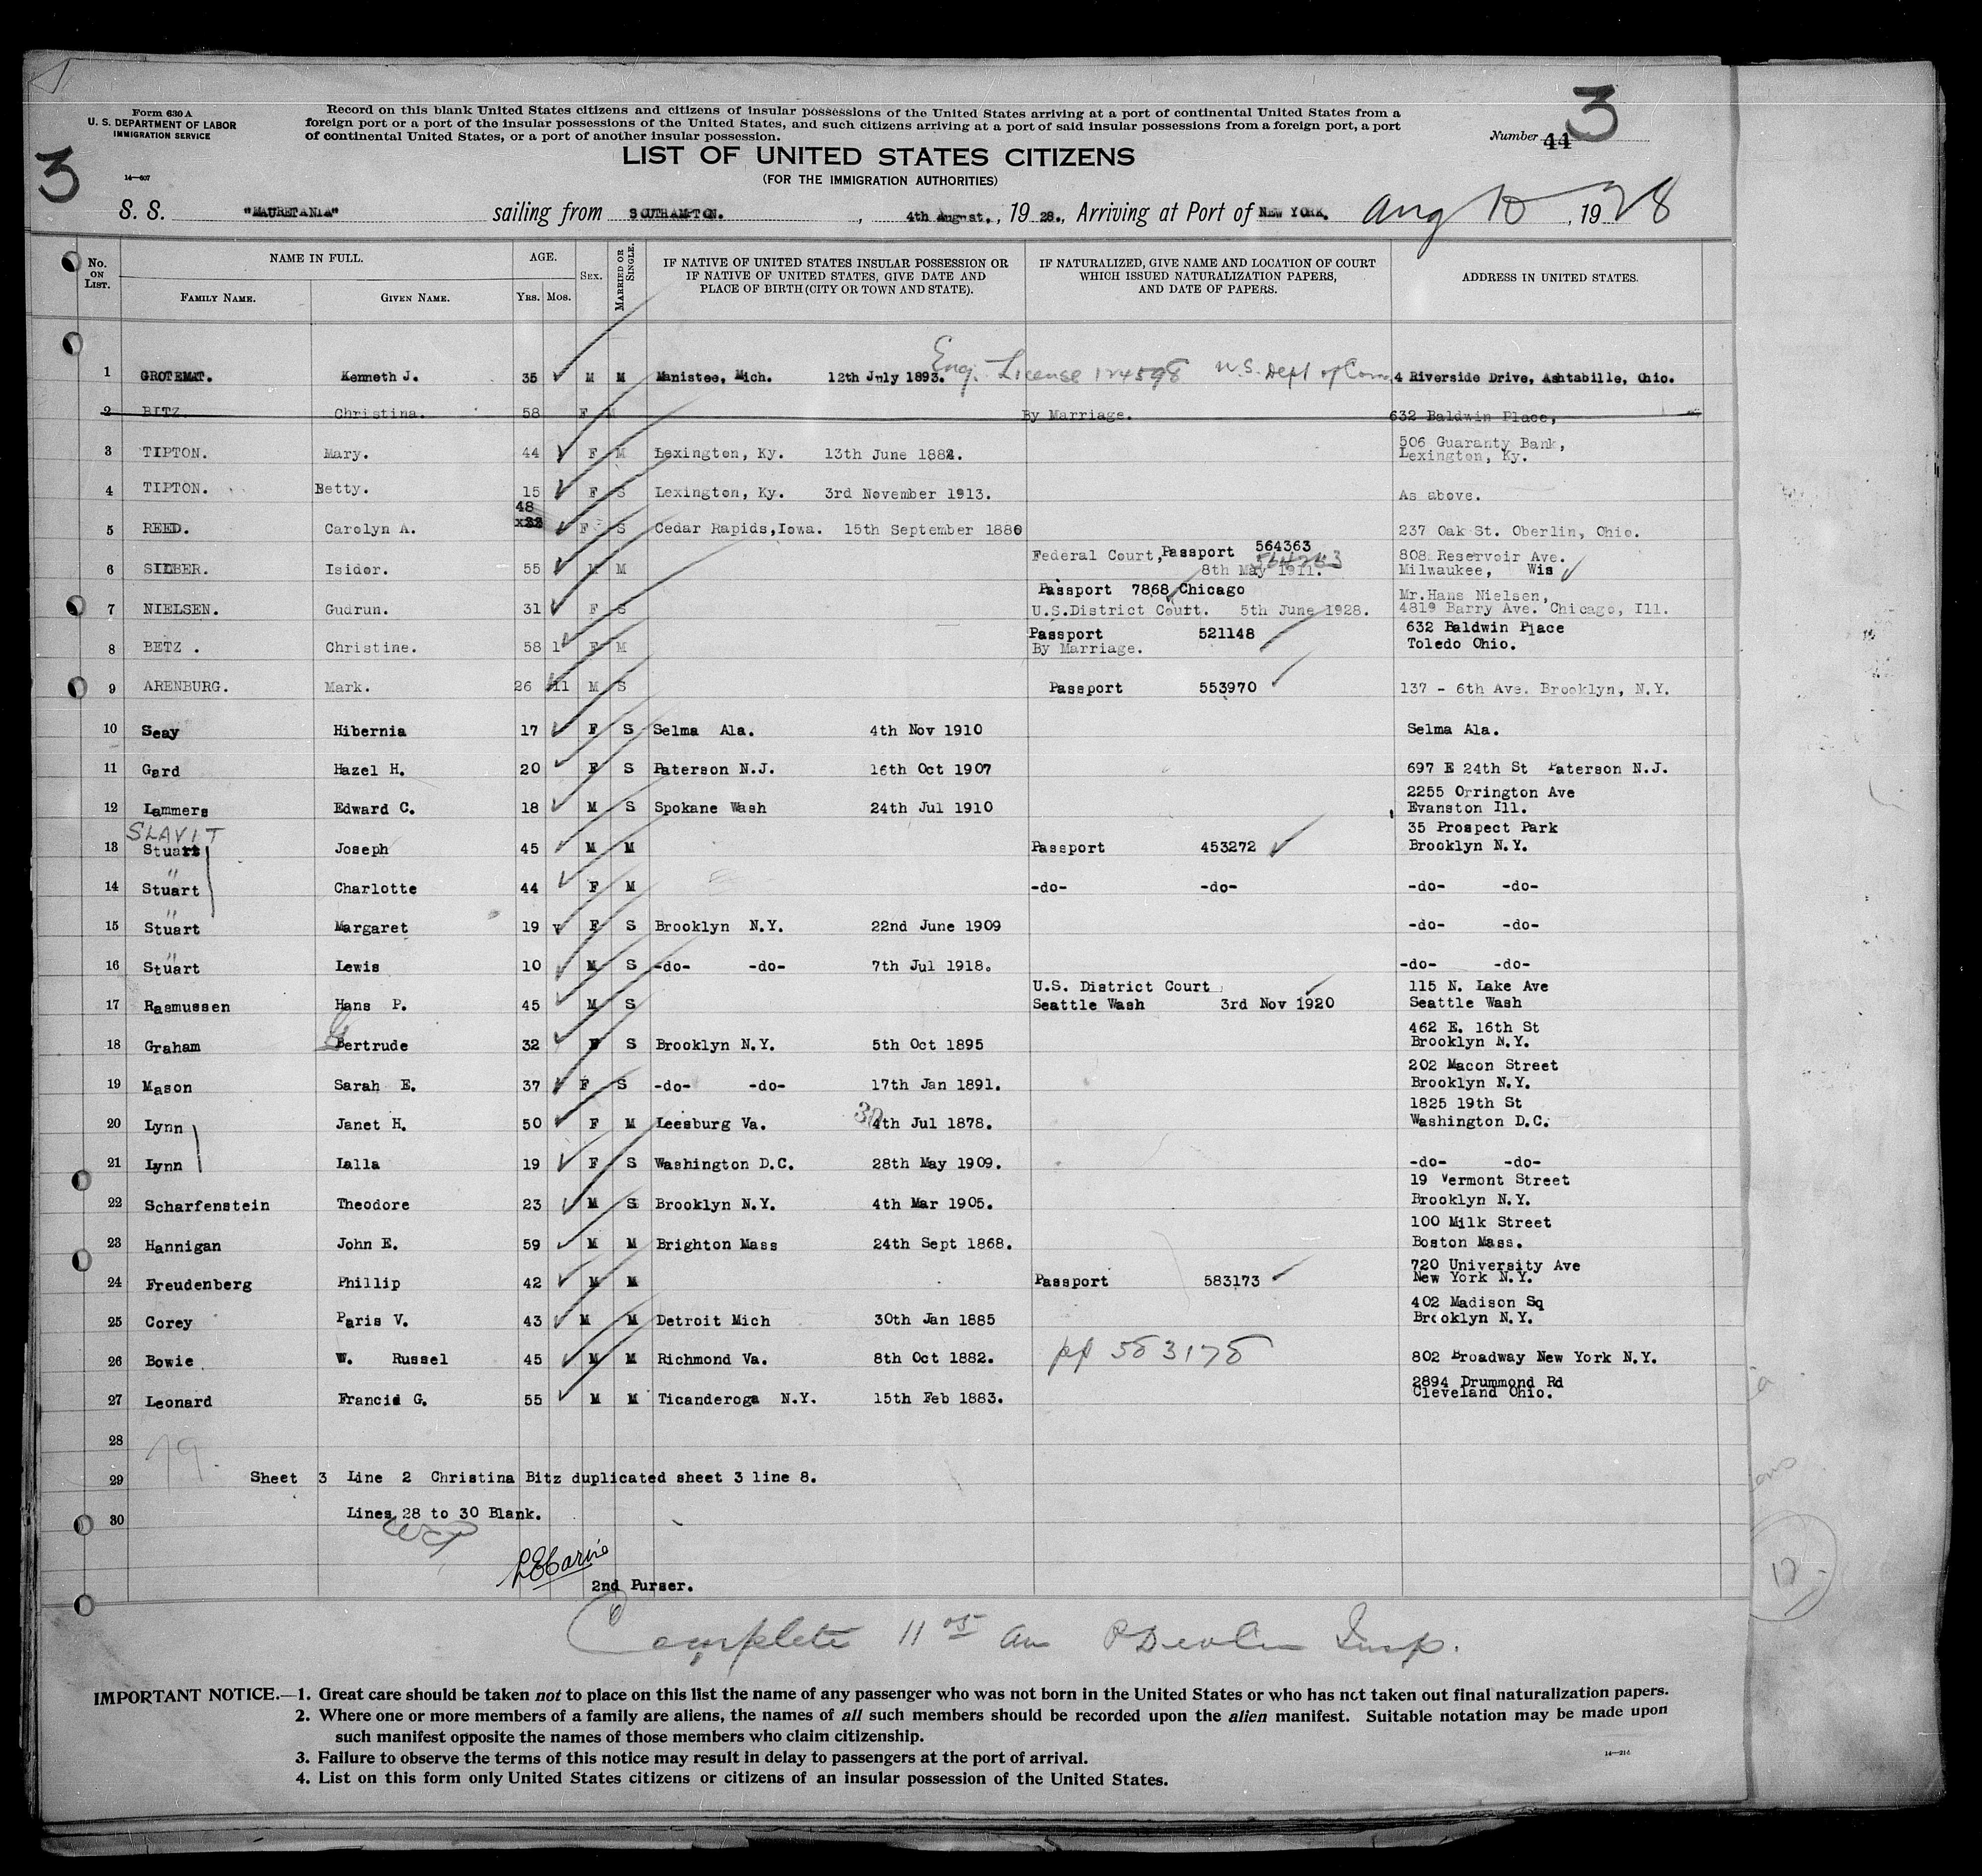 Form 630 A
U. S. DEPARTMENT OF LABOR
IMMIGRATION SERVICE
14—607
Record on this blank United States citizens and citizens of insular possessions of the United States arriving at a port of continental United States from a
foreign port or a port of the insular possessions of the United States, and such citizens arriving at a port of said insular possessions from a foreign port, a port
of continental United States, or a port of another insular possession.
Number 44 3
3
LIST OF UNITED STATES CITIZENS
(FOR THE IMMIGRATION AUTHORITIES)
S. S. "MAURETANIA" sailing from SOUTHAMPTON. , 4th August. , 19 28. , Arriving at Port of NEW YORK. Aug 10 , 1928
No. ON LIST. NAME IN FULL. AGE. SEX. MARRIED OR SINGLE. IF NATIVE OF UNITED STATES INSULAR POSSESSION OR IF NATIVE OF UNITED STATES, GIVE DATE AND PLACE OF BIRTH (CITY OR TOWN AND STATE). IF NATURALIZED, GIVE NAME AND LOCATION OF COURT WHICH ISSUED NATURALIZATION PAPERS, AND DATE OF PAPERS. ADDRESS IN UNITED STATES.
FAMILY NAME. GIVEN NAME. YRS. MOS.
Eng. License 124598 U.S. Dept of Com
1 GROTEMAT. Kenneth J. 35 M M Manistee, Mich. 12th July 1893. 4 Riverside Drive, Ashtabille, Ohio.
2 BITZ. Christina. 58 F M By Marriage. 632 Baldwin Place,
506 Guaranty Bank,
3 TIPTON. Mary. 44 F M Lexington, Ky. 13th June 1884. Lexington, Ky.
4 TIPTON. Betty. 15 F S Lexington, Ky. 3rd November 1913. As above.
48
5 REED. Carolyn A. x38 F S Cedar Rapids,Iowa. 15th September 1880 237 Oak St. Oberlin, Ohio.
Federal Court, Passport 564363 808 Reservoir Ave.
6 SILBER. Isidor. 55 M M 8th May 1911. Milwaukee, Wis
Passport 7868 Chicago Mr.Hans Nielsen,
7 NIELSEN. Gudrun. 31 F S U.S.District Court. 5th June 1928. 4819 Barry Ave. Chicago, Ill.
Passport 521148 632 Baldwin Place
8 BETZ . Christine. 58 1 F M By Marriage. Toledo Ohio.
9 ARENBURG. Mark. 26 11 M S Passport 553970 137 - 6th Ave. Brooklyn, N.Y.
10 Seay Hibernia 17 F S Selma Ala. 4th Nov 1910 Selma Ala.
11 Gard Hazel H. 20 F S Paterson N.J. 16th Oct 1907 697 E 24th St Paterson N.J.
2255 Orrington Ave
12 Lammers Edward C. 18 M S Spokane Wash 24th Jul 1910 Evanston Ill.
SLAVIT 35 Prospect Park
13 Stuart Joseph 45 M M Passport 453272 Brooklyn N.Y.
14 Stuart Charlotte 44 F M -do- -do- -do- -do-
15 Stuart Margaret 19 F S Brooklyn N.Y. 22nd June 1909 -do- -do-
16 Stuart Lewis 10 M S -do- -do- 7th Jul 1918. -do- -do-
U.S. District Court 115 N. Lake Ave
17 Rasmussen Hans P. 45 M S Seattle Wash 3rd Nov 1920 Seattle Wash
462 E. 16th St
18 Graham Gertrude 32 F S Brooklyn N.Y. 5th Oct 1895 Brooklyn N.Y.
202 Macon Street
19 Mason Sarah E. 37 F S -do- -do- 17th Jan 1891. Brooklyn N.Y.
1825 19th St
20 Lynn Janet H. 50 F M Leesburg Va. 30 4th Jul 1878. Washington D.C.
21 Lynn Lalla 19 F S Washington D.C. 28th May 1909. -do- -do-
19 Vermont Street
22 Scharfenstein Theodore 23 M S Brooklyn N.Y. 4th Mar 1905. Brooklyn N.Y.
100 Milk Street
23 Hannigan John E. 59 M M Brighton Mass 24th Sept 1868. Boston Mass.
720 University Ave
24 Freudenberg Phillip 42 M M Passport 583173 New York N.Y.
402 Madison Sq
25 Corey Paris V. 43 M M Detroit Mich 30th Jan 1885 Brooklyn N.Y.
26 Bowie W. Russel 45 M M Richmond Va. 8th Oct 1882. pp 583175 802 Broadway New York N.Y.
2894 Drummond Rd
27 Leonard Francis G. 55 M M Ticanderoga N.Y. 15th Feb 1883. Cleveland Ohio.
28
29 Sheet 3 Line 2 Christina Bitz duplicated sheet 3 line 8.
Lines 28 to 30 Blank.
30
2nd Purser.
Complete 11 05 am P Devlin Insp.
IMPORTANT NOTICE.—1. Great care should be taken not to place on this list the name of any passenger who was not born in the United States or who has not taken out final naturalization papers.
2. Where one or more members of a family are aliens, the names of all such members should be recorded upon the alien manifest. Suitable notation may be made upon
such manifest opposite the names of those members who claim citizenship.
3. Failure to observe the terms of this notice may result in delay to passengers at the port of arrival.
4. List on this form only United States citizens or citizens of an insular possession of the United States.